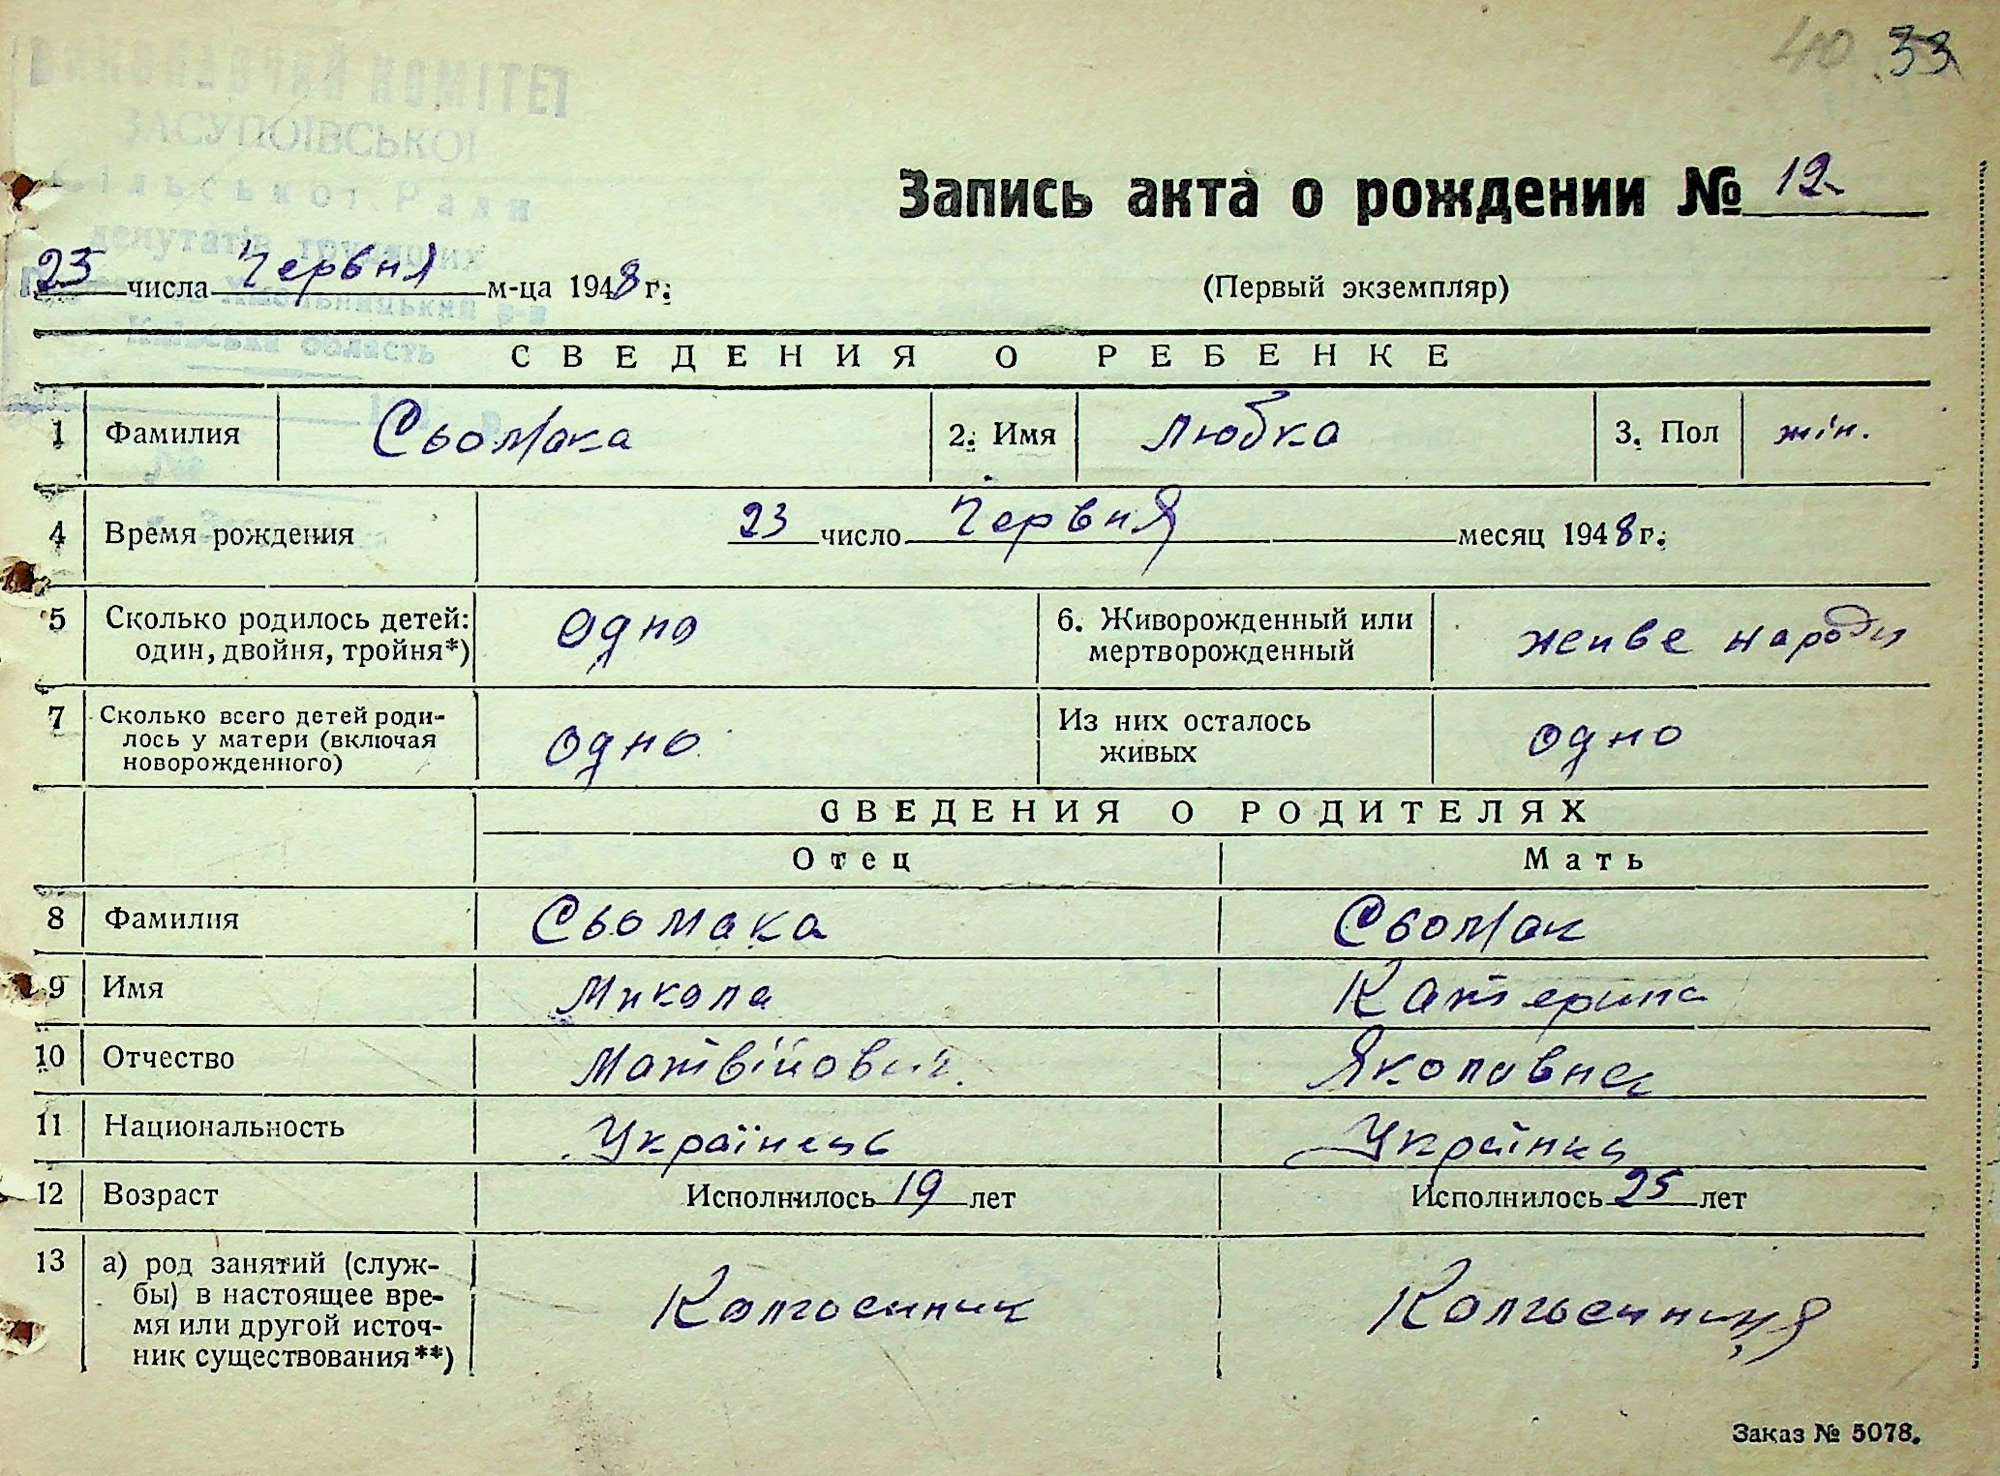 40 33
ВИКОНАВЧИЙ КОМІТЕТ
ЗАСУПОЇВСЬКОЇ
Сільської Ради
депутатів трудящих
Хмельницький р-н
Київська область
Запись акта о рождении № 12
23 числа Червня м-ца 1948 г.
(Первый экземпляр)
СВЕДЕНИЯ О РЕБЕНКЕ
1 Фамилия Сьомака 2. Имя Любка 3. Пол жін.
4 Время рождения 23 число Червня месяц 1948 г.
5 Сколько родилось детей: один, двойня, тройня*) одно 6. Живорожденный или мертворожденный живе народж
7 Сколько всего детей роди-
лось у матери (включая
новорожденного) одно Из них осталось живых одно
СВЕДЕНИЯ О РОДИТЕЛЯХ
Отец Мать
8 Фамилия Сьомака Сьомак
9 Имя Микола Катерина
10 Отчество Матвійович Якопивна
11 Национальность Українець Українка
12 Возраст Исполнилось 19 лет Исполнилось 25 лет
13 а) род занятий (служ-
бы) в настоящее вре-
мя или другой источ-
ник существования**) Колгоспник Колгоспниця
Заказ № 5078.